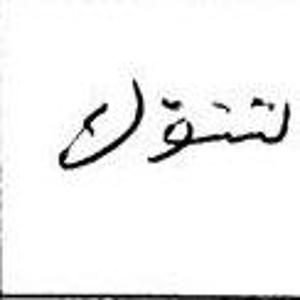 لتنوك